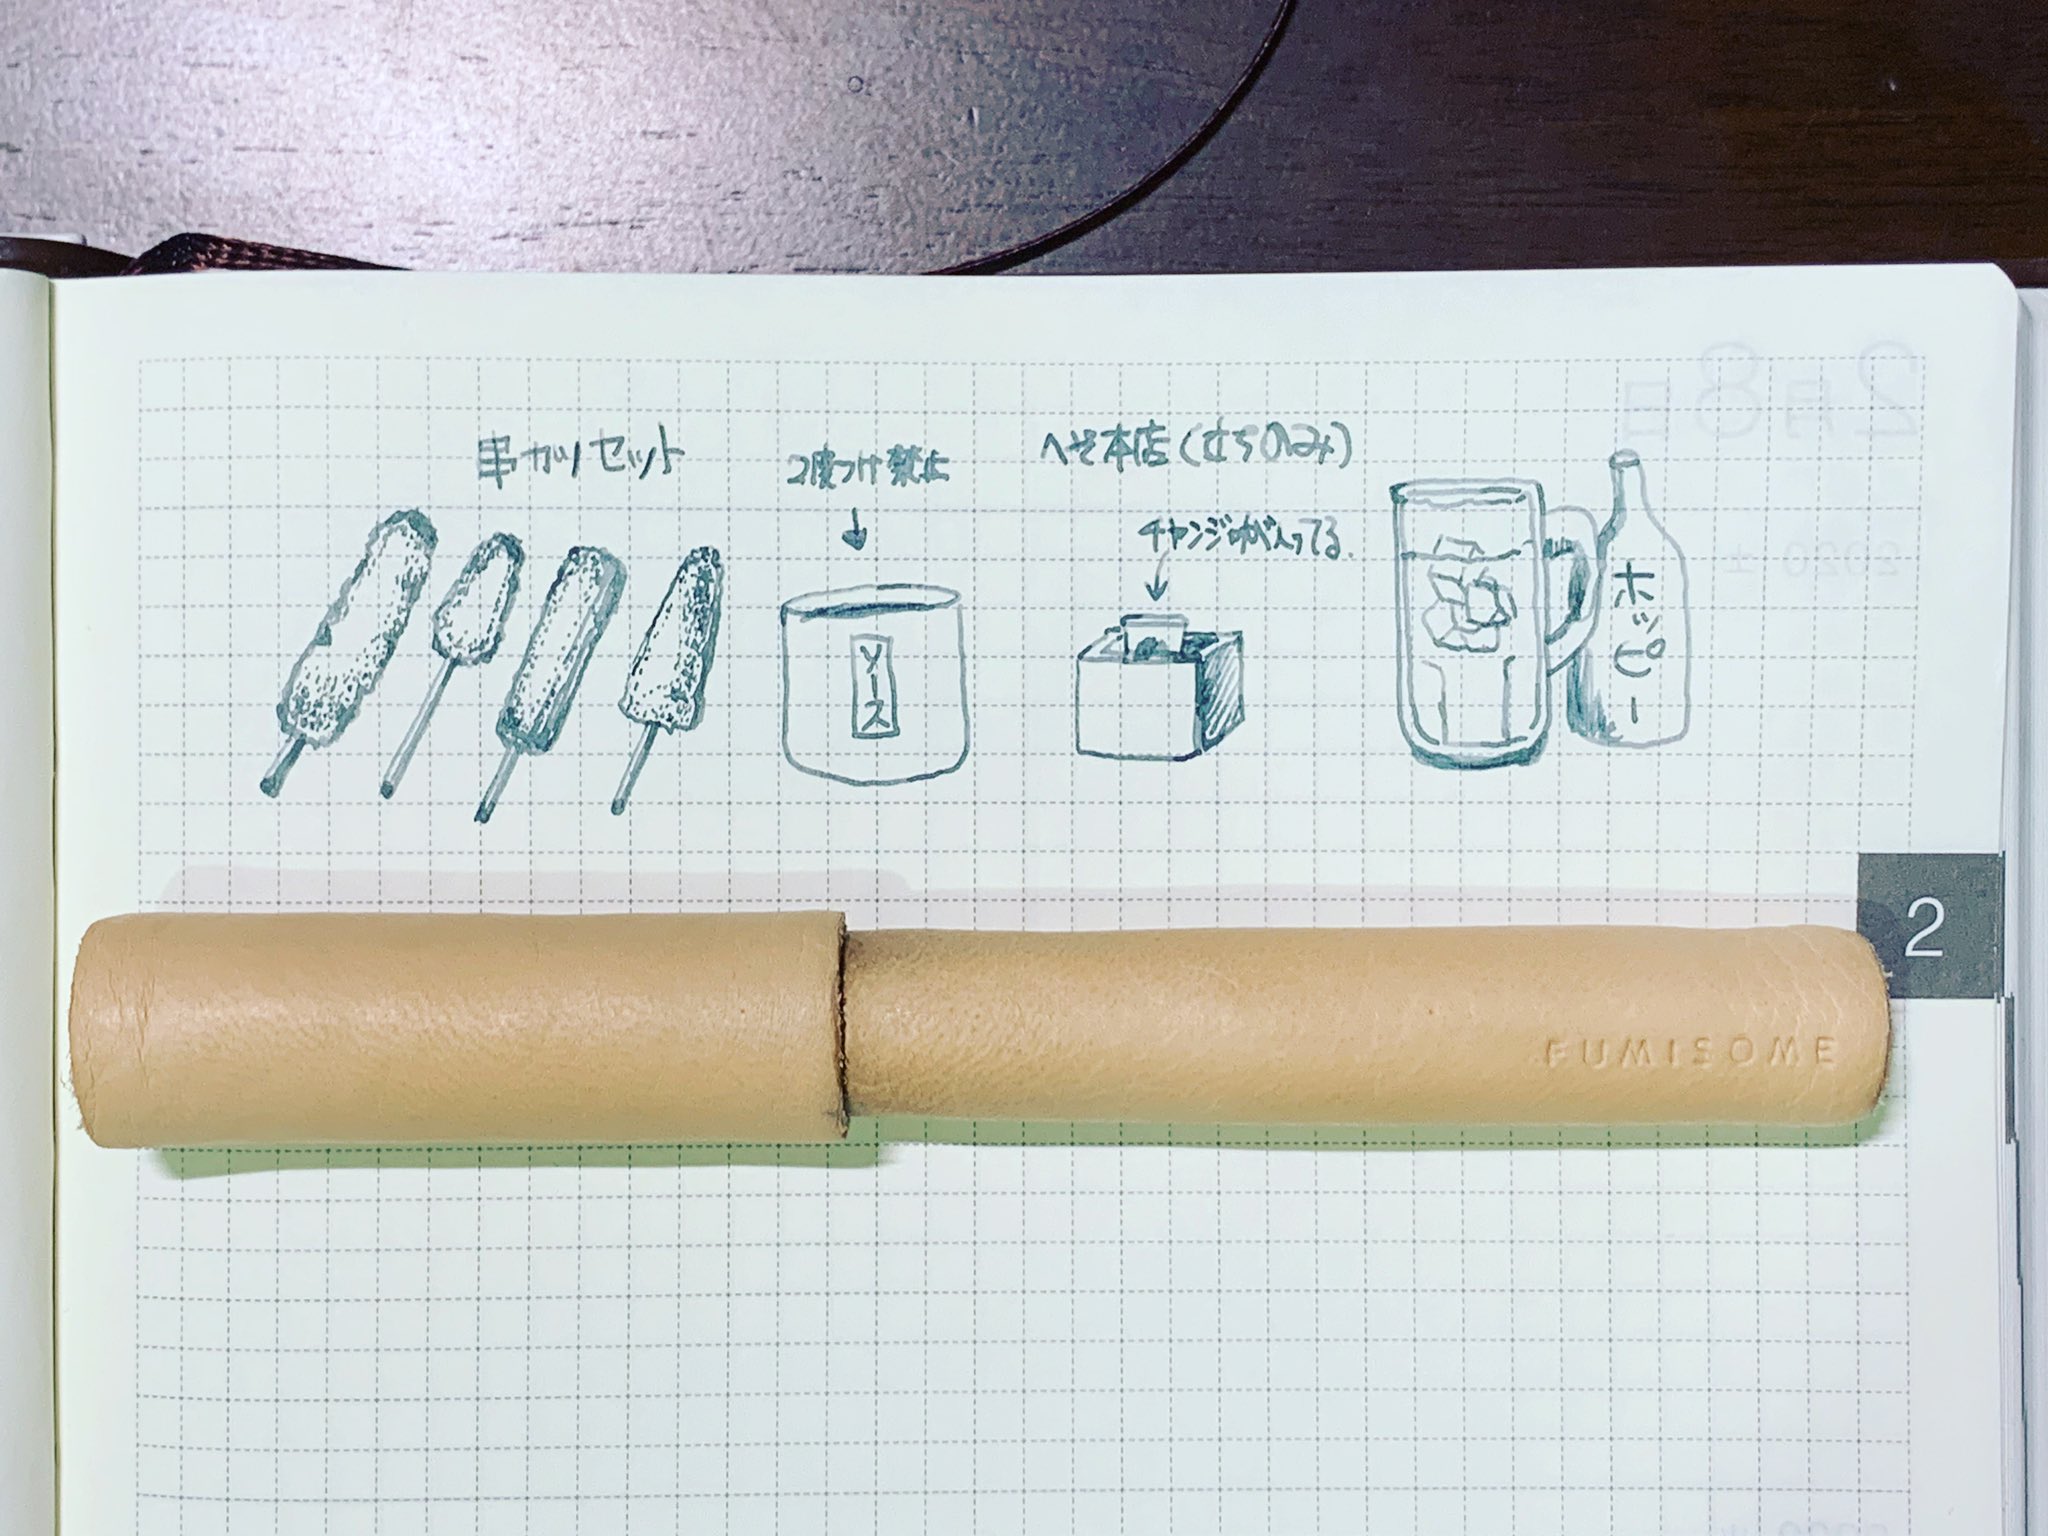 串カツセット
2度つけ禁止
↓
ソース
へそ本店(立ちのみ)
チャンジャが入ってる.
↓
ホッピー
2
FUMISOME
2月8日
2020 土